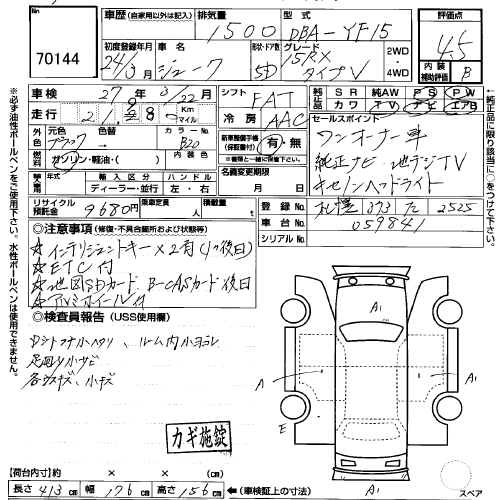 No
70144
車歴 (自家用以外は記入)
排気量 1500
型式 DBA-YF15
評価点 4.5
内装補助評価 B
初度登録年月 24/3月
車名 ジューク
形状・ドア数 5D
グレード 15RX タイプV
2WD
4WD
車検 27年3/22月
走行
Km
マイル
シフト FAT
冷房 AAC
純正品 SR 純AW PS PW
カワ TV ナビ エアB
外色 元色 ブラック 色替 カラーNo B20
新車整備手帳(保証書付) 有・無
※書類と一緒に保管下さい。
セールスポイント
ワンオーナー車
純正ナビ 地デジTV
キセノンヘッドライト
燃料 ガソリン・軽油・( )
内装色
名義変更期限
月 日
輸入車用 年式 輸入区分 ハンドル
ディーラー・並行 左・右
リサイクル預託金 9680円
乗車定員 人
積載量 t
登録No 373 2525
車台No 059841
シリアルNo
◎注意事項 (修復・不具合箇所および状態等)
☆インテリジェントキー×2有(1ヶ後日)
☆ETC付
☆地図SDカード、B-CASカード後日
☆アルミホイール付
◎検査員報告 (USS使用欄)
ルーム内小ヨゴレ
足回り小サビ
各キズ、小キズ
カギ施錠
A1
A
A
E
A1
【荷台内寸】約 × ×
長さ 413 cm 幅 176 cm 高さ 156 cm
(車検証上の寸法)
スペア
※必ず油性ボールペンをご使用下さい。水性ボールペンは使用できません。
←純正品に該当項目に○をつけて下さい。